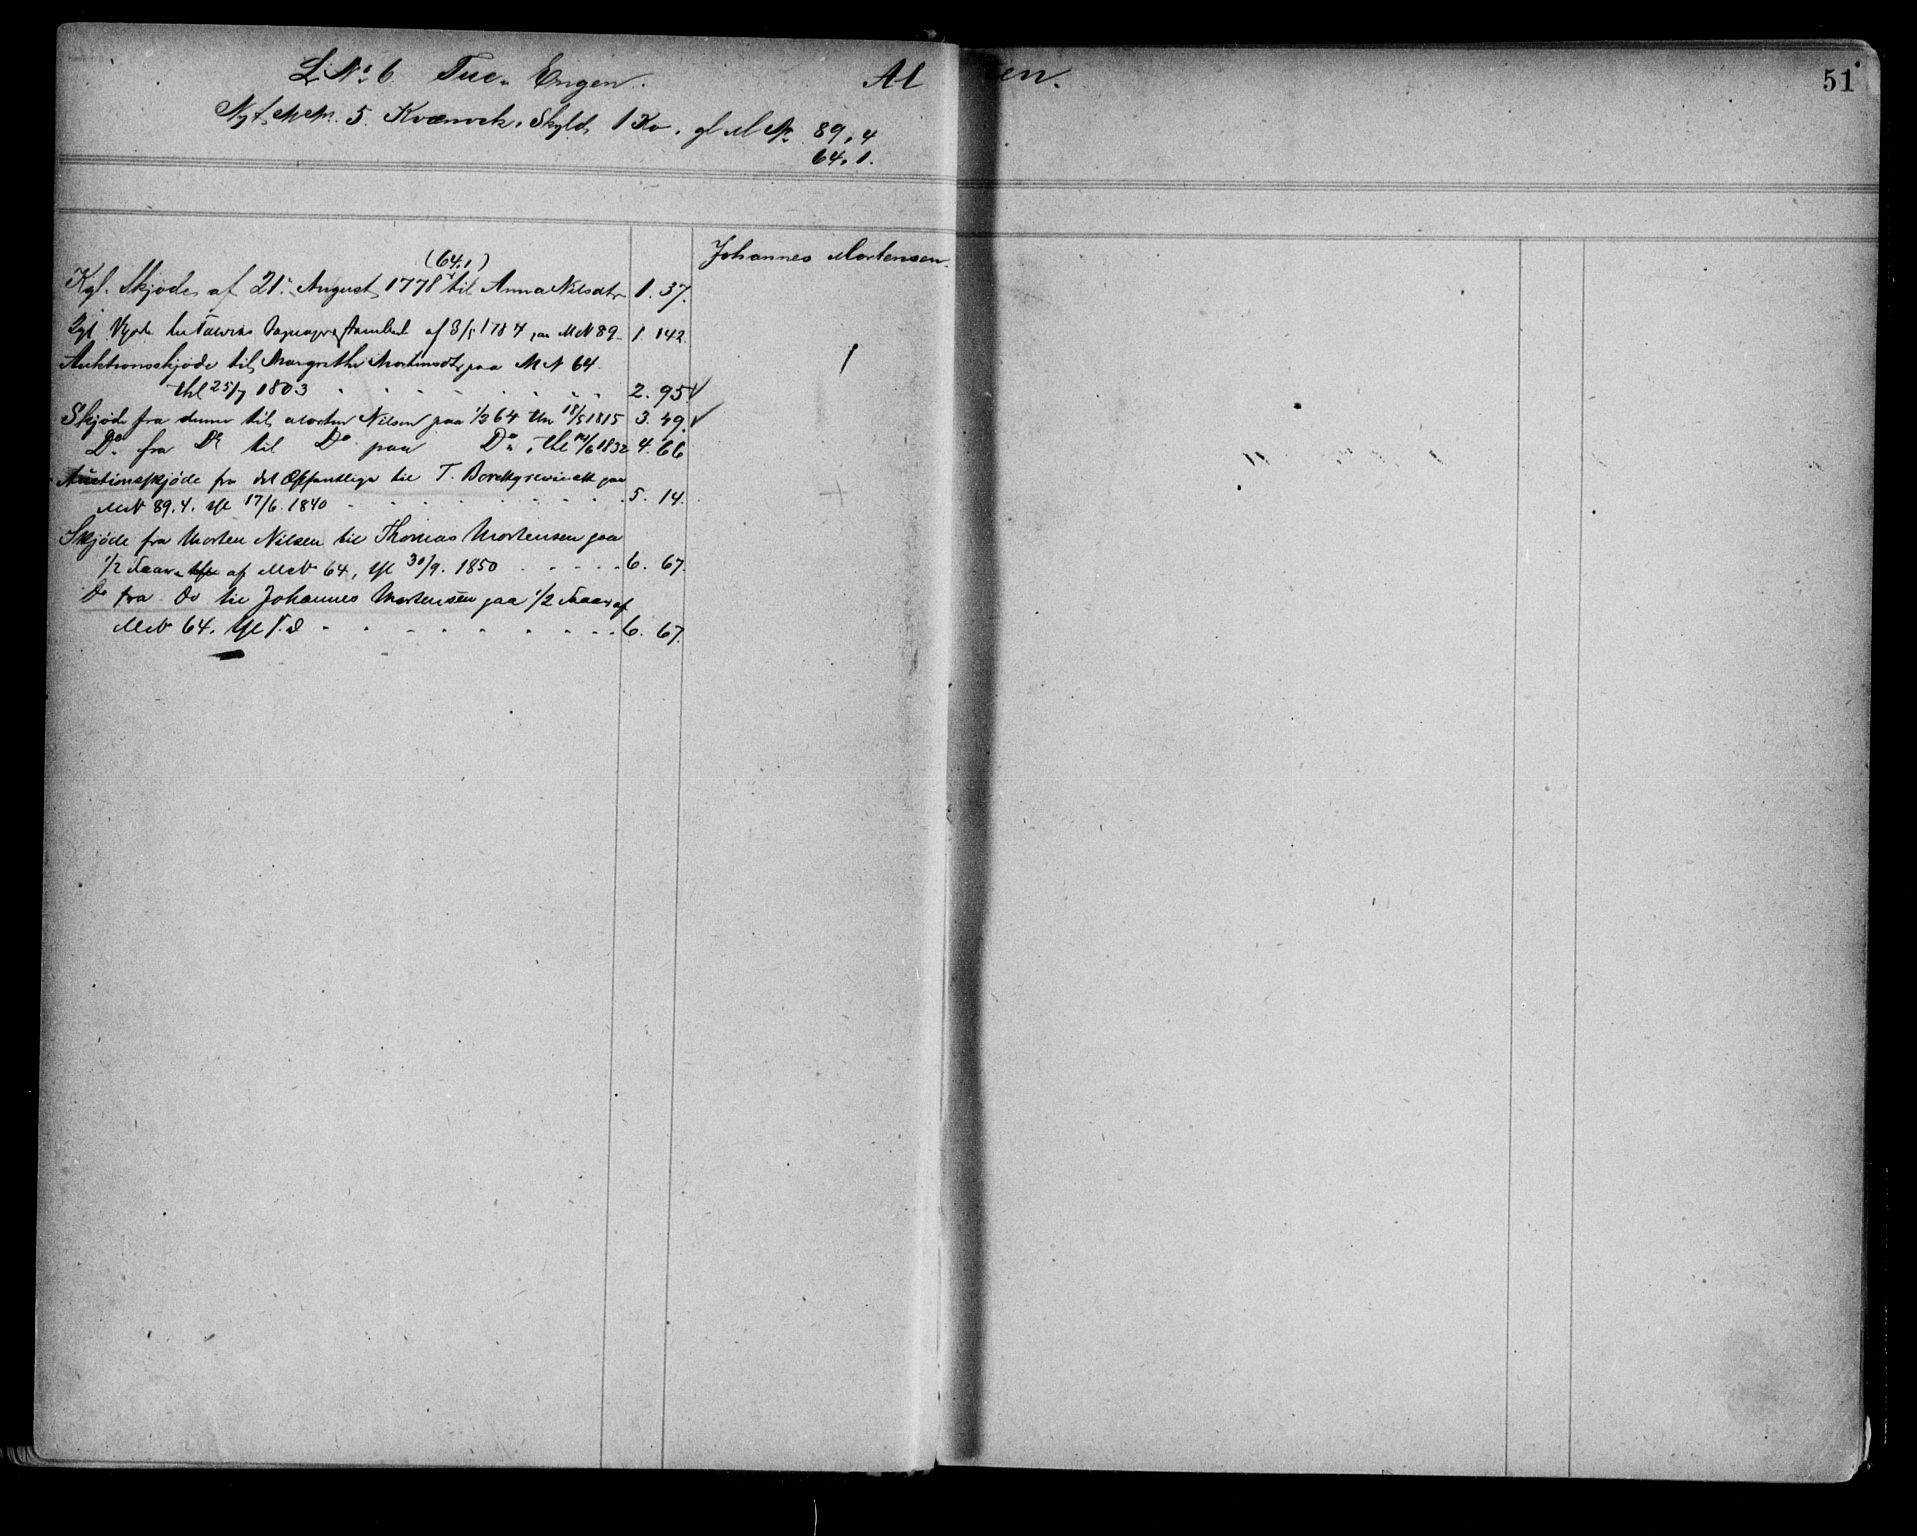 L. No. 6. Tue. Engen.
Al ten.
51
Nyt M.Nr. 5. Kvænvik. Skyld, 1 Ko. gl M Nr. 89,4
64,1.
Johannes Mortensen.
(64,1)
Kgl. Skjøde, af 21. August 1778 til Anna Nilsdtr 1. 37.
Kgl. Skjøde til af 3/5 1784, M N 89 1 142
Auktionsskjøde til Margrethe Mortensdtr paa M N 64.
thl 25/7 1803 2. 95.
Skjøde fra denne til Morten Nilsen paa 1/2 64 thl 18/5 1815 3. 49.
Do fra Do til Do paa Do, thl 14/6 1832 4. 66
Auctionsskjøde fra det Offentlige til T. Borchgrevinck paa
M N 89.4. thl 17/6. 1840 5. 14.
Skjøde fra Morten Nilsen til Thomas Mortensen paa
1/2 af M N 64, thl 30/9. 1850 6. 67.
Do fra Do til Johannes Mortensen paa 1/2 af
M N 64. thl s.d 6. 67.